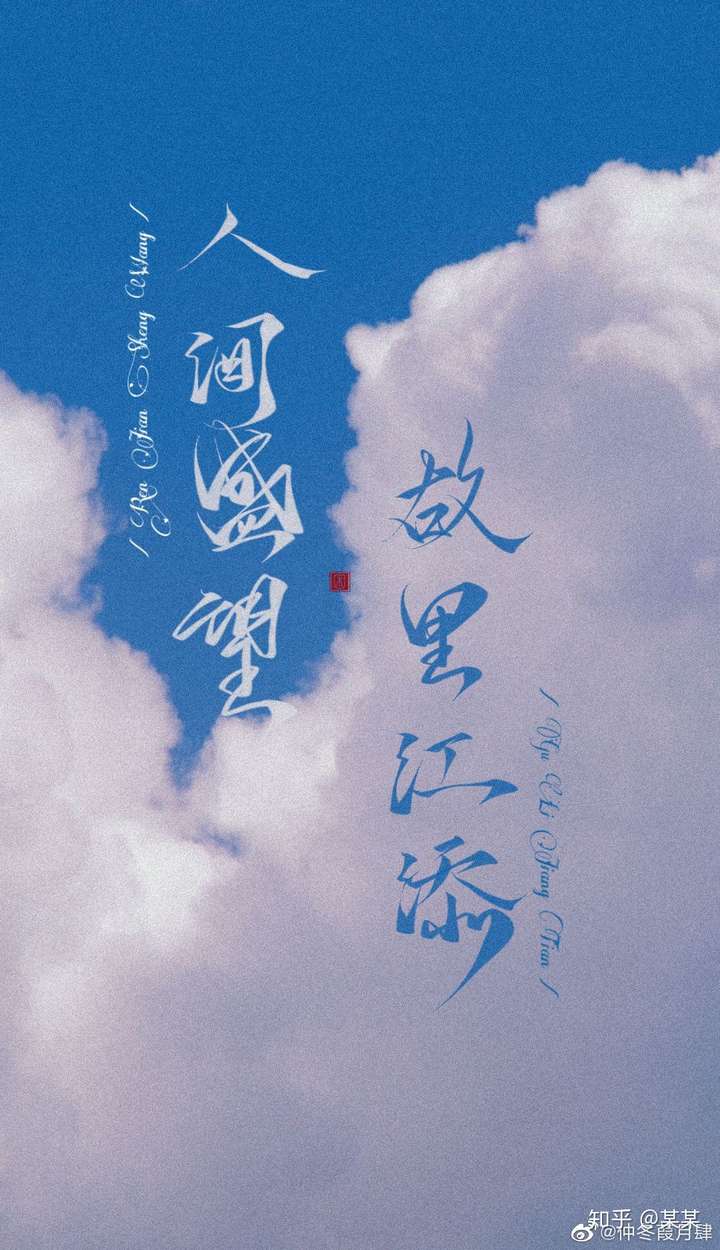 人间盛望
/ Ren Jian Sheng Wang /
故里江添
/ Gu Li Jiang Tian /
知乎 @某某
@仲冬葭月肆